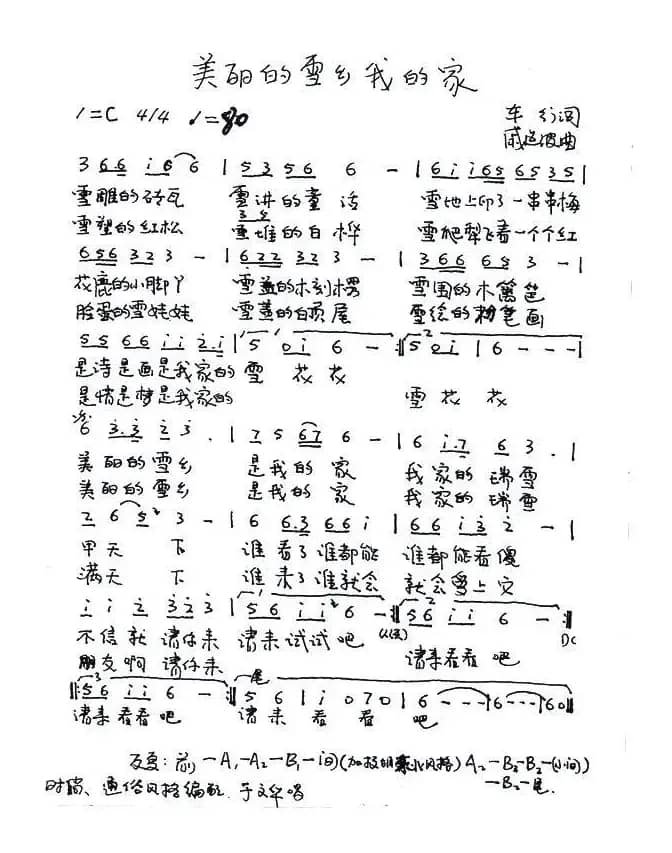 美丽的雪乡我的家
1=C 4/4 ♩=80 车行词
戚建波曲
3 6 6 i 6 6 | 5 3 5 6 6 - | 6 i i 6 5 6 5 3 5 |
雪雕的砖瓦 雪讲的童话 雪地上印了一串串梅
雪塑的红松 雪堆的白桦 雪爬犁飞着一个个红
6 5 6 3 2 3 - | 6 2 2 3 2 3 - | 3 6 6 6 5 3 - |
花鹿的小脚丫 雪盖的木刻楞 雪围的木篱笆
脸蛋的雪娃娃 雪盖的白 尾 雪绘的粉笔画
5 5 6 6 i i 2 . i | 5 0 i 6 - :‖ 5 0 i | 6 - - - |
是诗是画是我家的雪 花花
是情是梦是我家的 雪 花 花
6 3 . 3 2 3 . | 7 5 6 7 6 - | 6 i . 7 6 3 . |
美丽的雪乡 是我的 家 我家的 瑞雪
美丽的雪乡 是我的 家 我家的 瑞雪
2 6 5 3 - | 6 6 . 3 6 6 i | 6 6 i 3 2 - |
甲天 下 谁看了谁都能 谁都能看傻
满天 下 谁来了谁就会 就会爱上它
i i 2 3 2 3 | 5 6 i i 6 - :‖ 5 6 i i 6 - :‖
不信就 请你来 请来试试吧 请来看看 吧 DC
朋友啊 请你来
‖: 5 6 i i 6 - :‖ 5 6 | i 0 7 0 | 6 - - - | 6 - - | 6 0 ‖
请来看看吧 请来 看 看 吧
反复：前 — A₁ — A₂ — B₁ — 间 (加 风格) A₂ — B₂ — B₂ — (小间)
— B₂ — 尾.
时尚、通俗风格编配. 于文华唱